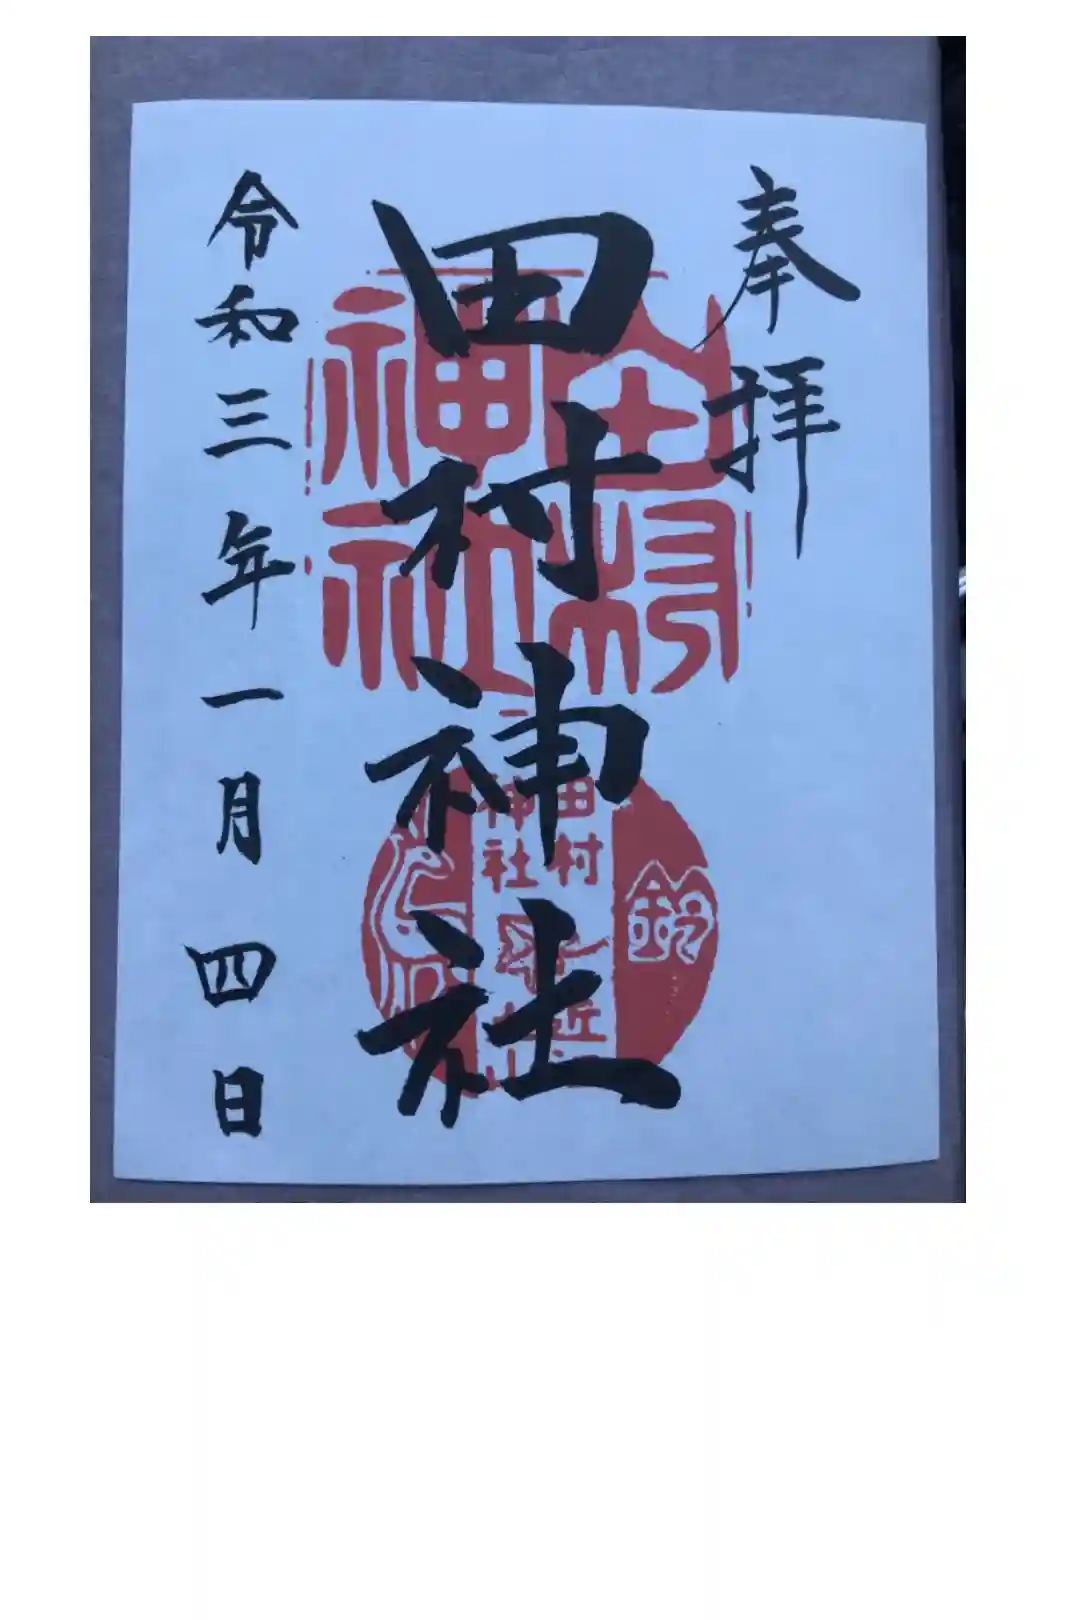 奉拝
田村神社
令和三年一月四日
田村
神社
田村
神社
鈴
近